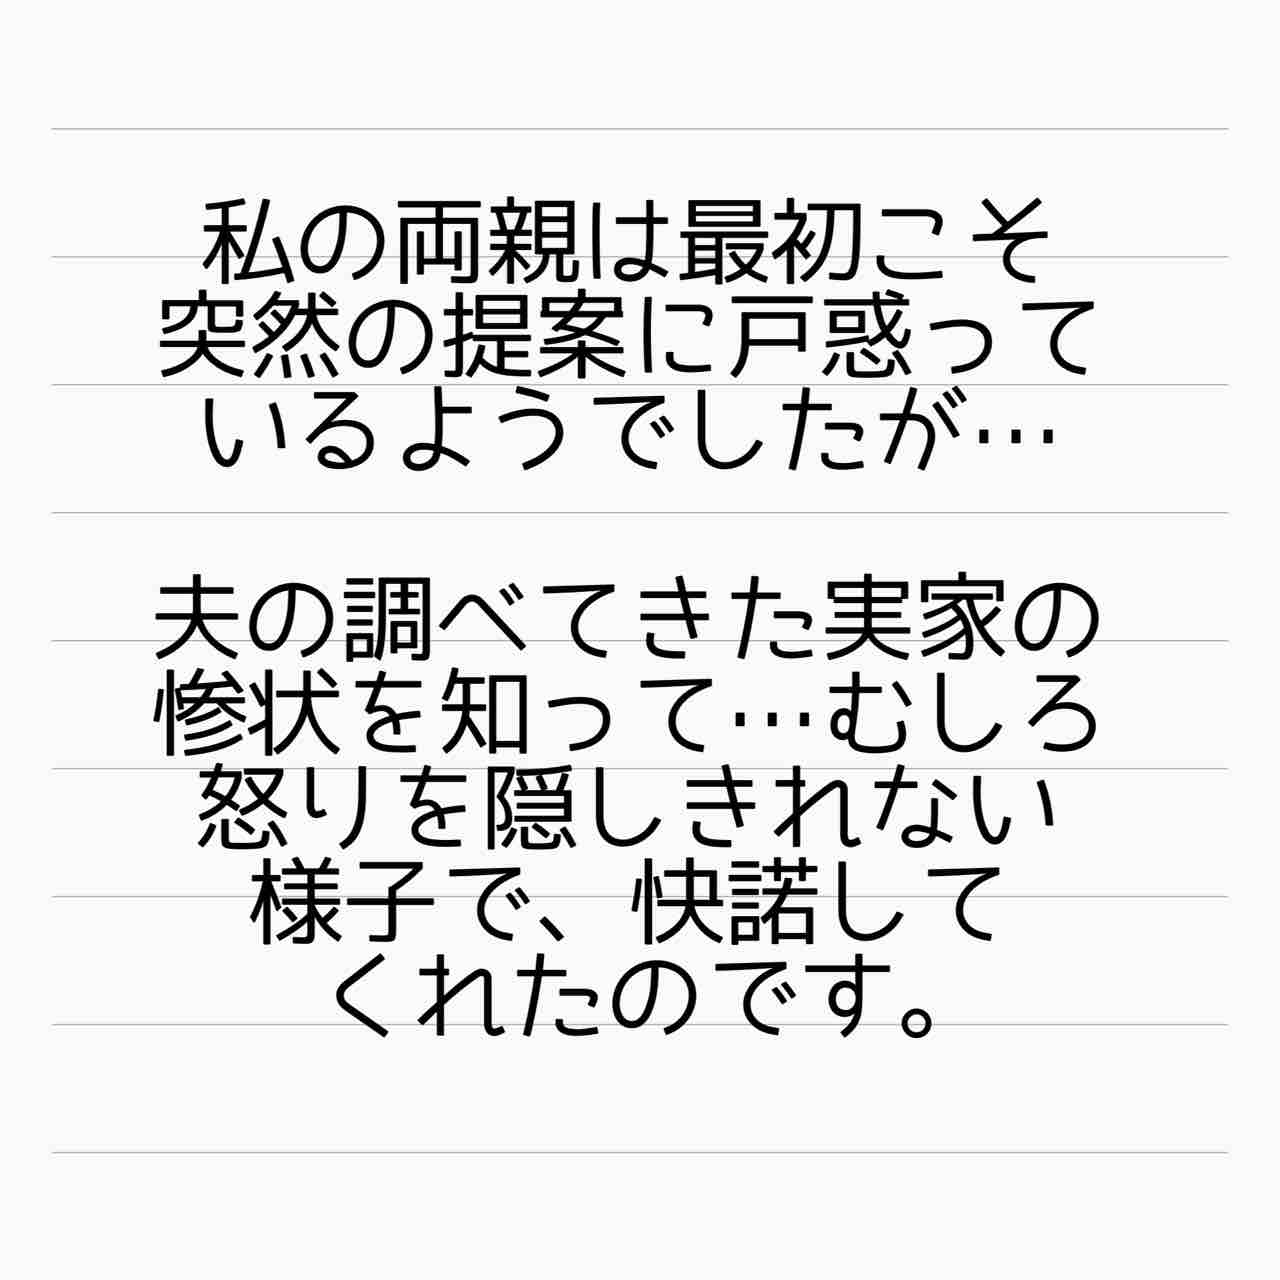 私の両親は最初こそ
突然の提案に戸惑って
いるようでしたが…
夫の調べてきた実家の
惨状を知って…むしろ
怒りを隠しきれない
様子で、快諾して
くれたのです。